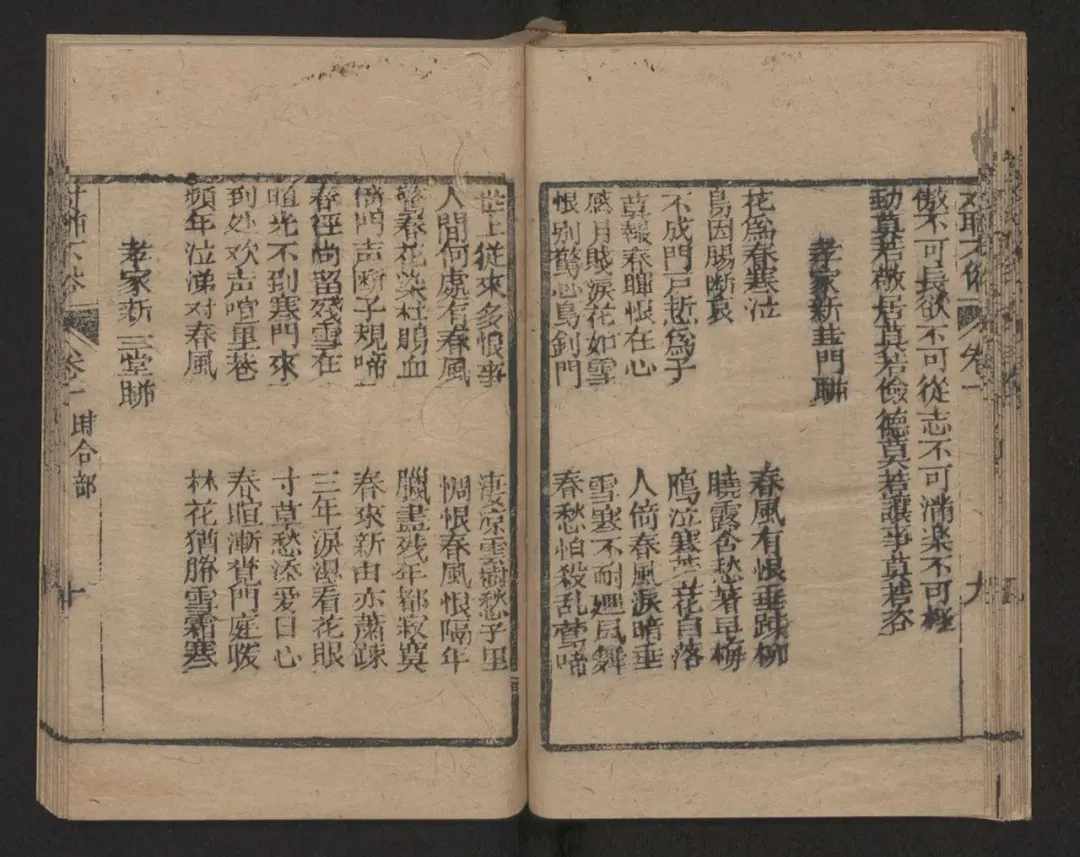 傲不可長欲不可從志不可滿楽不可極
動莫若敬居莫若儉德莫若讓事莫若咨
孝家新春門聯
花爲春寒泣
鳥因腸断哀
春風有恨垂踈柳
曉露含愁着早梅
不成門戶慙爲子
莫報春暉恨在心
鴈泣寒雲花自落
人倚春風淚暗垂
感月賎淚花如雪
恨别驚心鳥到門
雪寒不耐廻風舞
春愁怕殺乱莺啼
卷一
九
世上從來多恨事
人間何處有春風
凄凉雲樹愁子里
惆恨春風恨隔年
鶯春花染杜鵑血
倚門声断子規啼
臘盡残年都寂寞
春來新由亦蕭疎
春徑尚留殘雪在
暄光不到寒門來
三年淚湿看花眼
寸草愁添爱日心
到处欢声喧里巷
頻年泣涕对春風
春暄漸覚門庭暖
林花猶勝雪霜寒
孝家新三堂聯
卷一
時令部
十